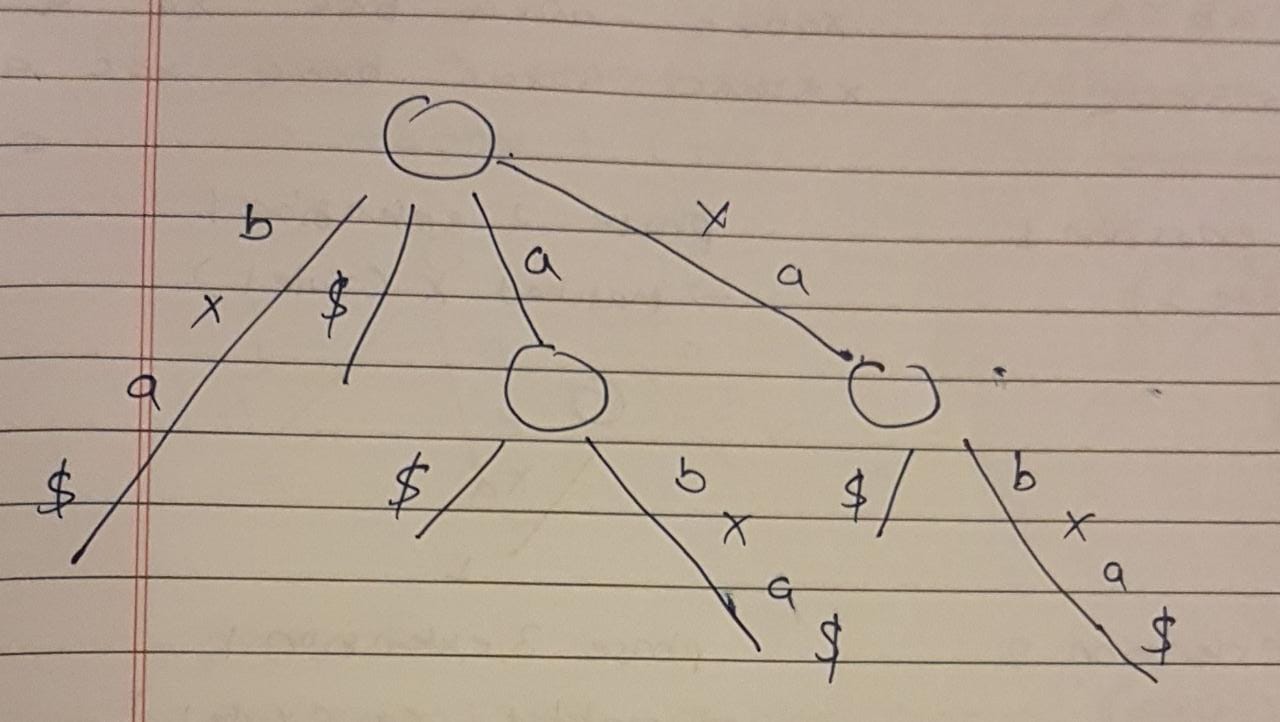 b
x
a
$
$
a
x
a
$
b
x
a
$
$
b
x
a
$